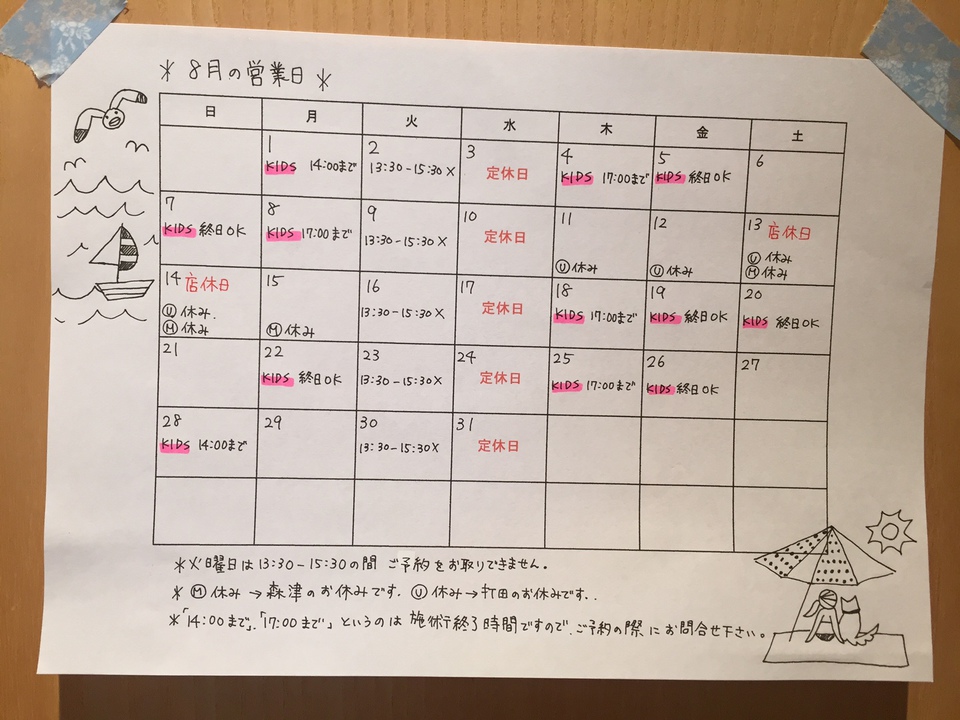 * 8月の営業日 *
日 月 火 水 木 金 土
1 2 3 4 5 6
KIDS 14:00まで 13:30-15:30× 定休日 KIDS 17:00まで KIDS 終日OK
7 8 9 10 11 12 13 店休日
KIDS 終日OK KIDS 17:00まで 13:30-15:30× 定休日 Ⓤ休み Ⓤ休み Ⓤ休み
Ⓜ休み
14 店休日 15 16 17 18 19 20
Ⓤ休み. Ⓜ休み 13:30-15:30× 定休日 KIDS 17:00まで KIDS 終日OK KIDS 終日OK
Ⓜ休み
21 22 23 24 25 26 27
KIDS 終日OK 13:30-15:30× 定休日 KIDS 17:00まで KIDS 終日OK
28 29 30 31
KIDS 14:00まで 13:30-15:30× 定休日
*火曜日は13:30-15:30の間 ご予約をお取りできません。
* Ⓜ休み→森津のお休みです. Ⓤ休み→打田のお休みです..
*「14:00まで」.「17:00まで」というのは 施術終了時間ですので.ご予約の際にお問合せ下さい。